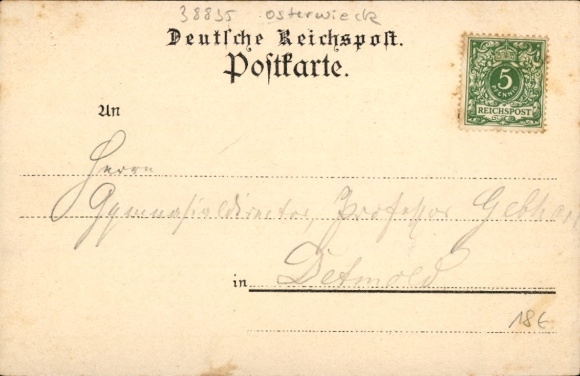 38835 Osterwieck
Deutsche Reichspost.
Postkarte.
5
PFENNIG
REICHSPOST
An
Herrn
Gymnasialdirector, Professor
in Detmold
18€